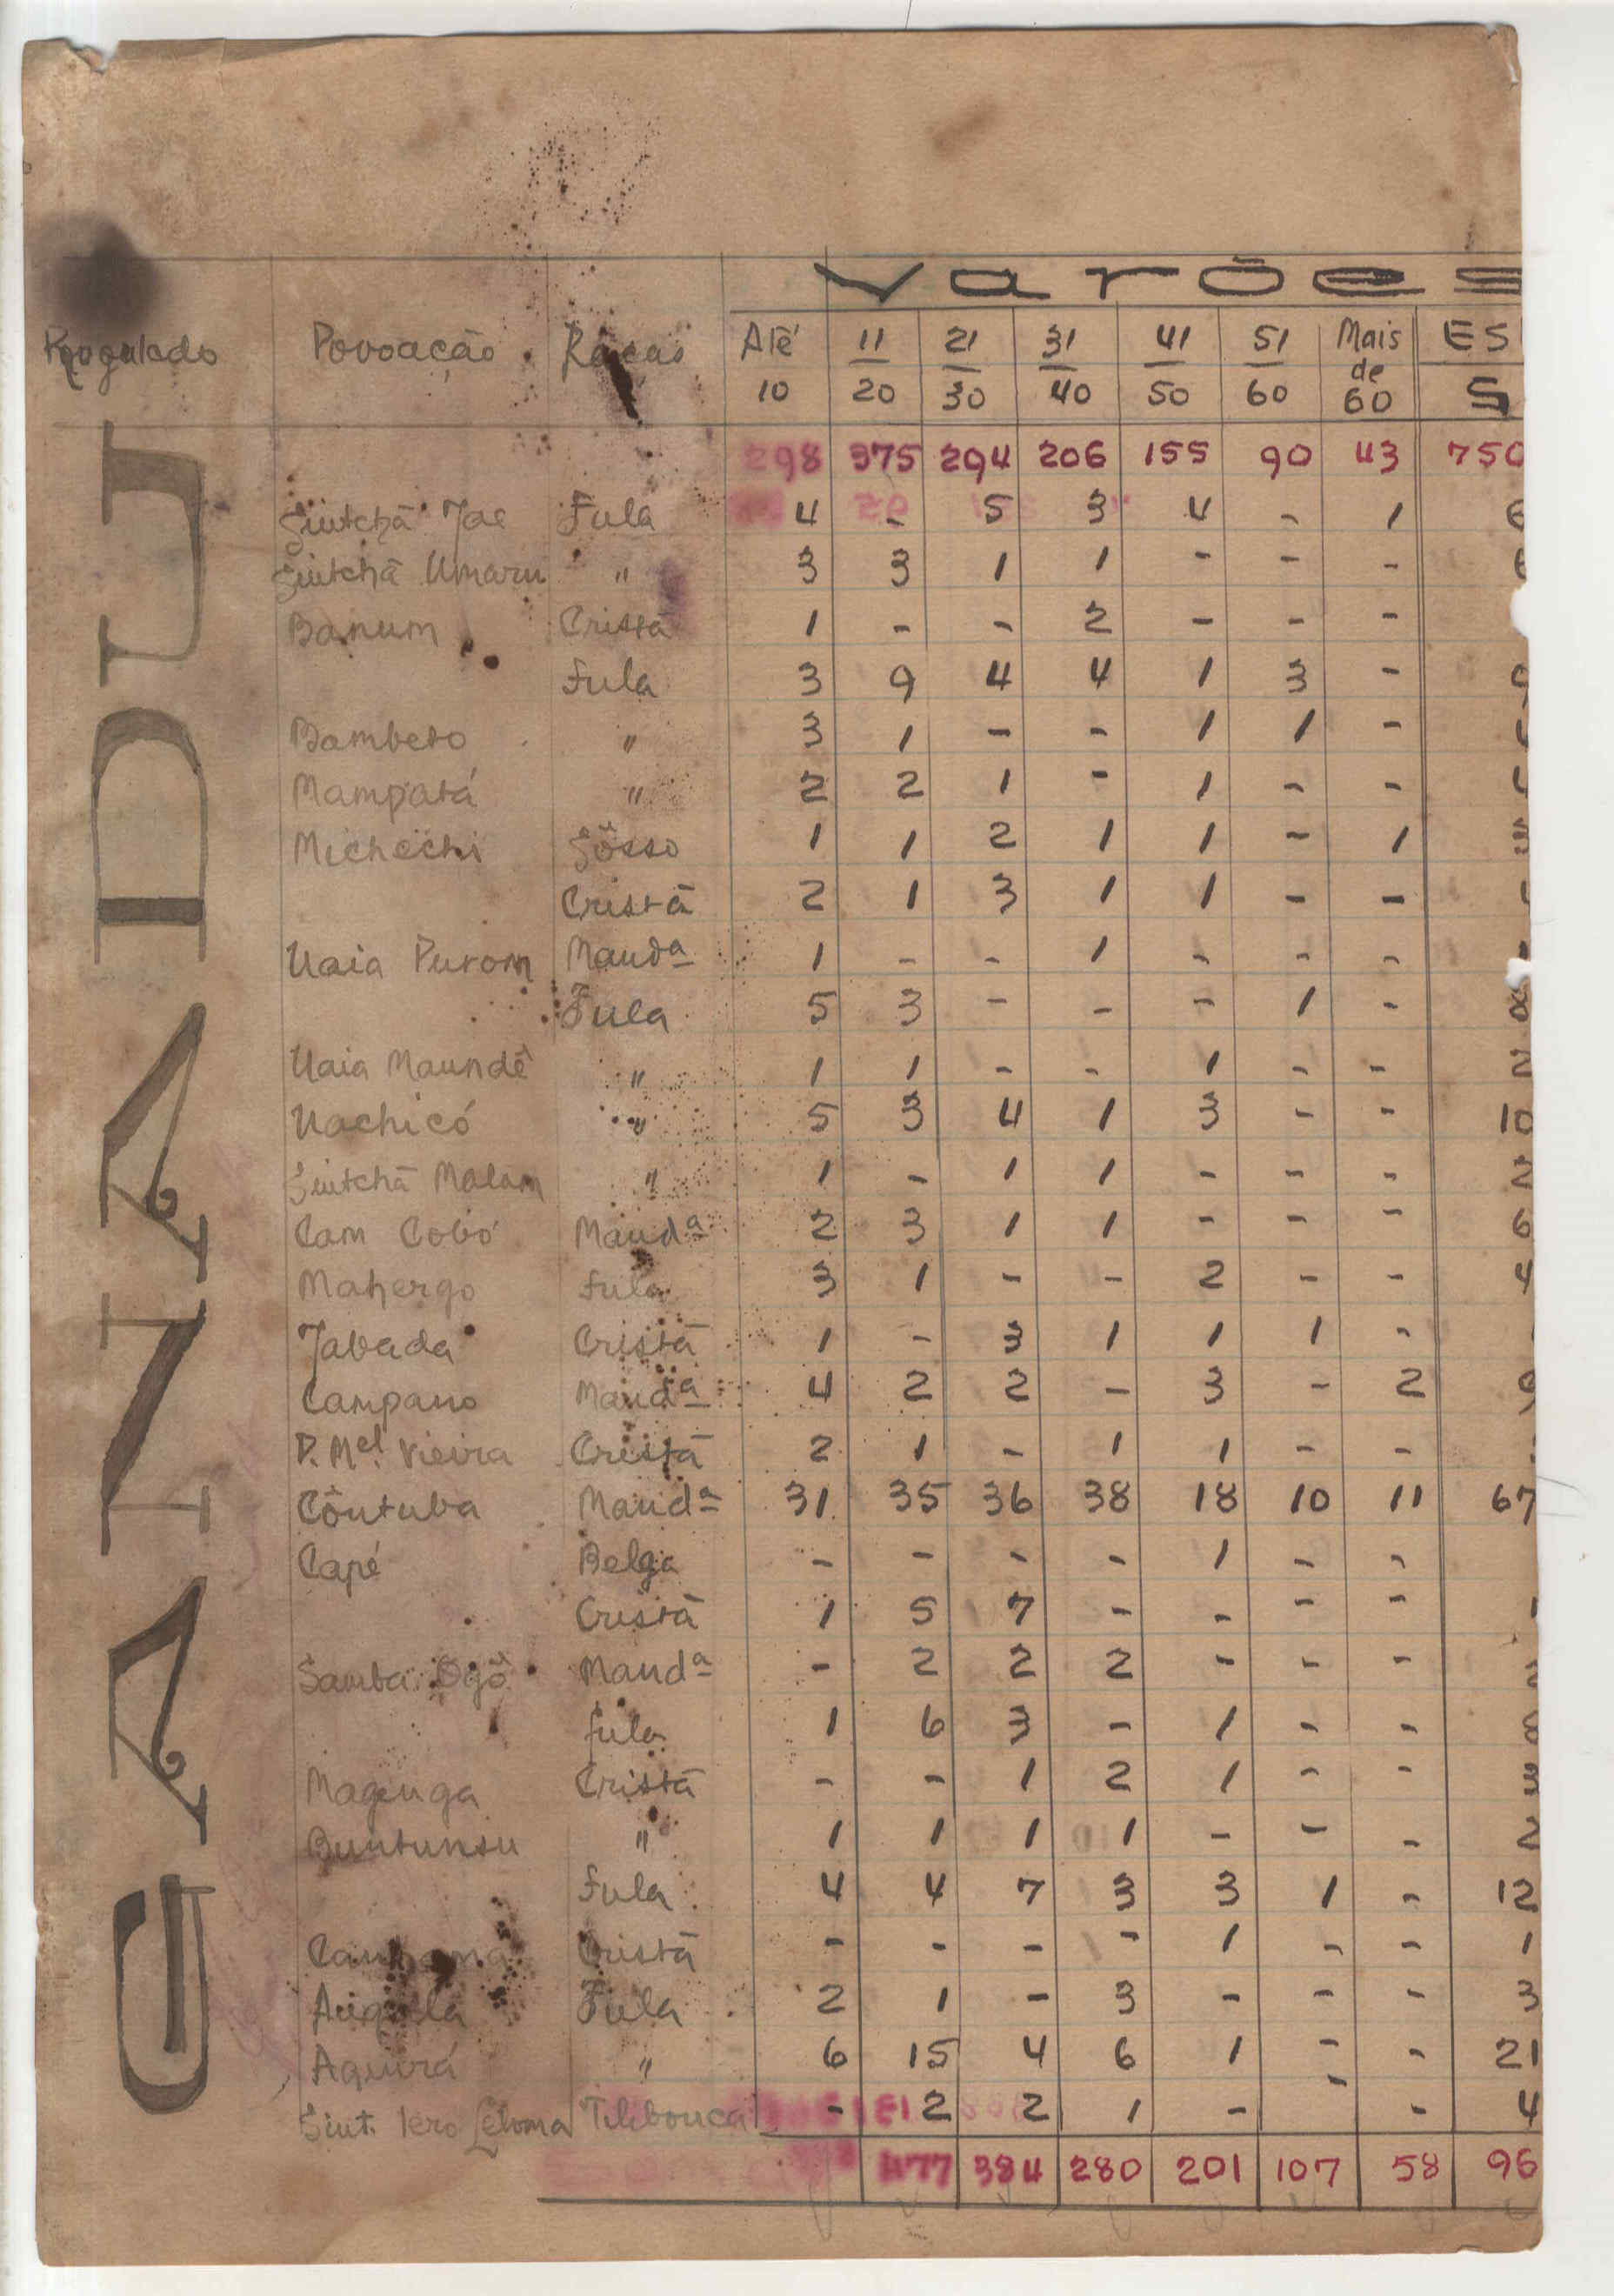 Varões
Regulado Povoação Raças Até 10 11 20 21 30 31 40 41 50 51 60 Mais de 60 ES S
GANADU
298 375 294 206 155 90 43 750
Sintchã Jae Fula 4 - 5 3 4 - 1
Sintchã Umaru " 3 3 1 1 - - -
Banum Cristã 1 - - 2 - - -
Fula 3 9 4 4 1 3 -
Bambeto " 3 1 - - 1 1 -
Mampatá " 2 2 1 - 1 - -
Michechi Sôsso 1 1 2 1 1 - 1 3
Cristã 2 1 3 1 1 - -
Uaia Purom Mandª 1 - - 1 - - -
Fula 5 3 - - - 1 - 8
Uaia Maundê " 1 1 - - 1 - - 2
Uachicó " 5 3 4 1 3 - - 10
Sintchã Malam " 1 - 1 1 - - - 2
Cam Cobó Mandª 2 3 1 1 - - - 6
Mahergo Fula 3 1 - - 2 - - 4
Jabada Cristã 1 - 3 1 1 1 -
Campano Mandª 4 2 2 - 3 - 2 9
P. Mel. Vieira Cristã 2 1 - 1 1 - -
Côntuba Mandª 31 35 36 38 18 10 11 67
Capé Belga - - - - 1 - -
Cristã 1 5 7 - - - -
Samba Ogô Mandª - 2 2 2 - - -
Fula 1 6 3 - 1 - - 8
Magenga Cristã - - 1 2 1 - - 3
Buntunsu " 1 1 1 1 - - - 2
Fula 4 4 7 3 3 1 - 12
Cristã - - - - 1 - - 1
Fula 2 1 - 3 - - - 3
Aguirá " 6 15 4 6 1 - - 21
Sint. Iero Tilibonca - 2 2 1 - - - 4
477 384 280 201 107 58 96